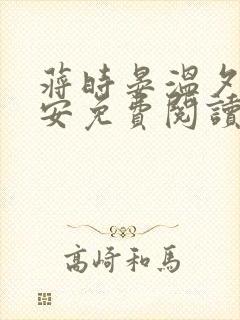 蔣時晏溫夕
安免費閱讀
高崎和馬